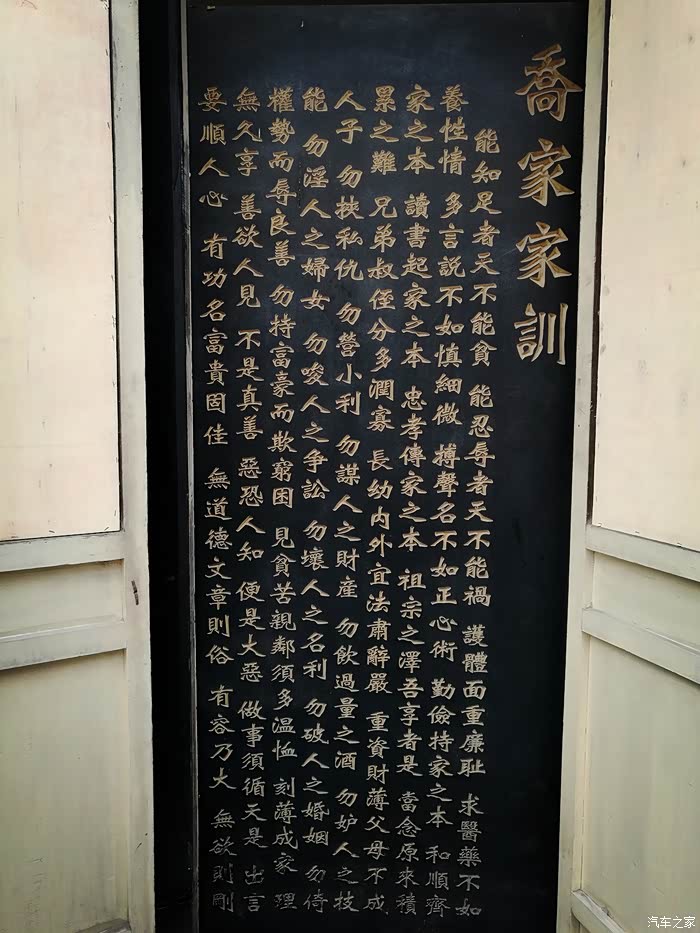 喬家家訓
能知足者天不能貧 能忍辱者天不能禍 護體面重廉耻 求醫藥不如
養性情 多言説不如慎細微 搏聲名不如正心術 勤儉持家之本 和順齊
家之本 讀書起家之本 忠孝傳家之本 祖宗之澤吾享者是 當念原來積
累之難 兄弟叔侄分多潤寡 長幼内外宜法肅辭嚴 重資財薄父母不成
人子 勿挾私仇 勿營小利 勿謀人之財産 勿飲過量之酒 勿妒人之技
能 勿淫人之婦女 勿唆人之争訟 勿壞人之名利 勿破人之婚姻 勿倚
權勢而辱良善 勿持富豪而欺窮困 見貧苦親鄰須多温恤 刻薄成家 理
無久享 善欲人見 不是真善 惡恐人知 便是大惡 做事須循天是 出言
要順人心 有功名富貴固佳 無道德文章則俗 有容乃大 無欲則剛
汽车之家